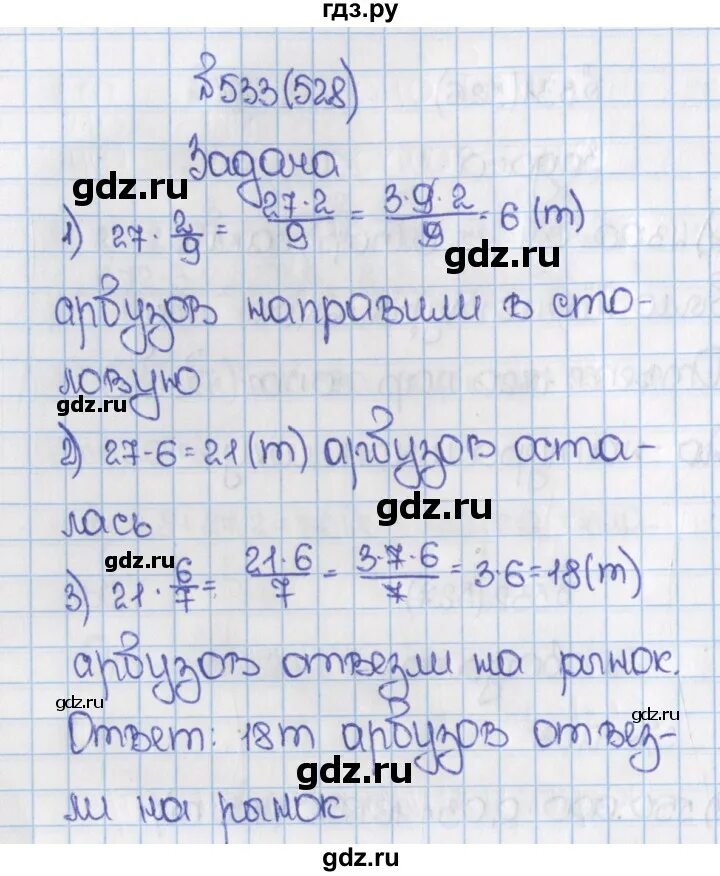 гдз.ру
№533(528)
Задача
gdz.ru
1) 27 · 2/9 = 27·2/9 = 3·9·2/9 = 6 (т)
gdz.ru
арбузов направили в сто-
ловую
gdz.ru
2) 27-6=21(т) арбузов оста-
gdz.ru
лась
gdz.ru
3) 21 · 6/7 = 21·6/7 = 3·7·6/7 = 3·6=18(т)
арбузов отвезли на рынок.
gdz.ru
gdz.ru
Ответ: 18т арбузов отвез-
gdz.ru
ли на рынок
gdz.ru